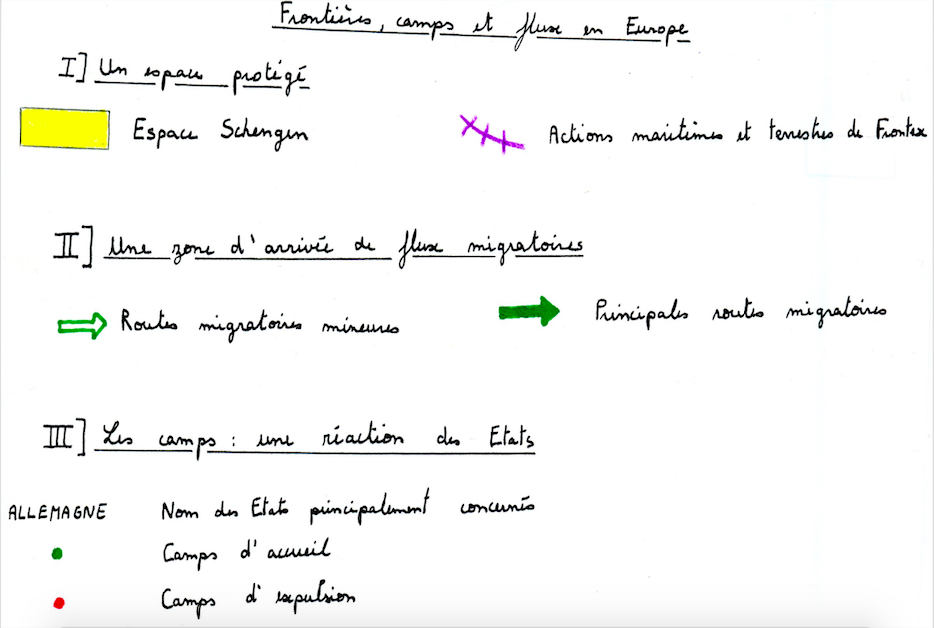 Frontières, camps et flux en Europe
I] Un espace protégé
Espace Schengen
Actions maritimes et terrestres de Frontex
II] Une zone d'arrivée de flux migratoires
Routes migratoires mineures
Principales routes migratoires
III] Les camps : une réaction des Etats
ALLEMAGNE Nom des Etats principalement concernés
Camps d'accueil
Camps d'expulsion